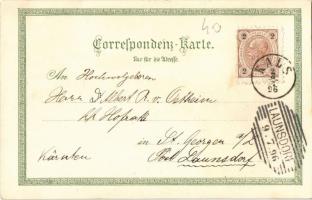 40
Correspondenz-Karte.
Nur für die Adresse.
2 2
An Hochwolgeboren
Herrn Dr Albert R. v. Ostheim
kk Hofrath
in St. Georgen a/L
Kärnten Post Launsdorf
LAUNSDORF
9.7.96